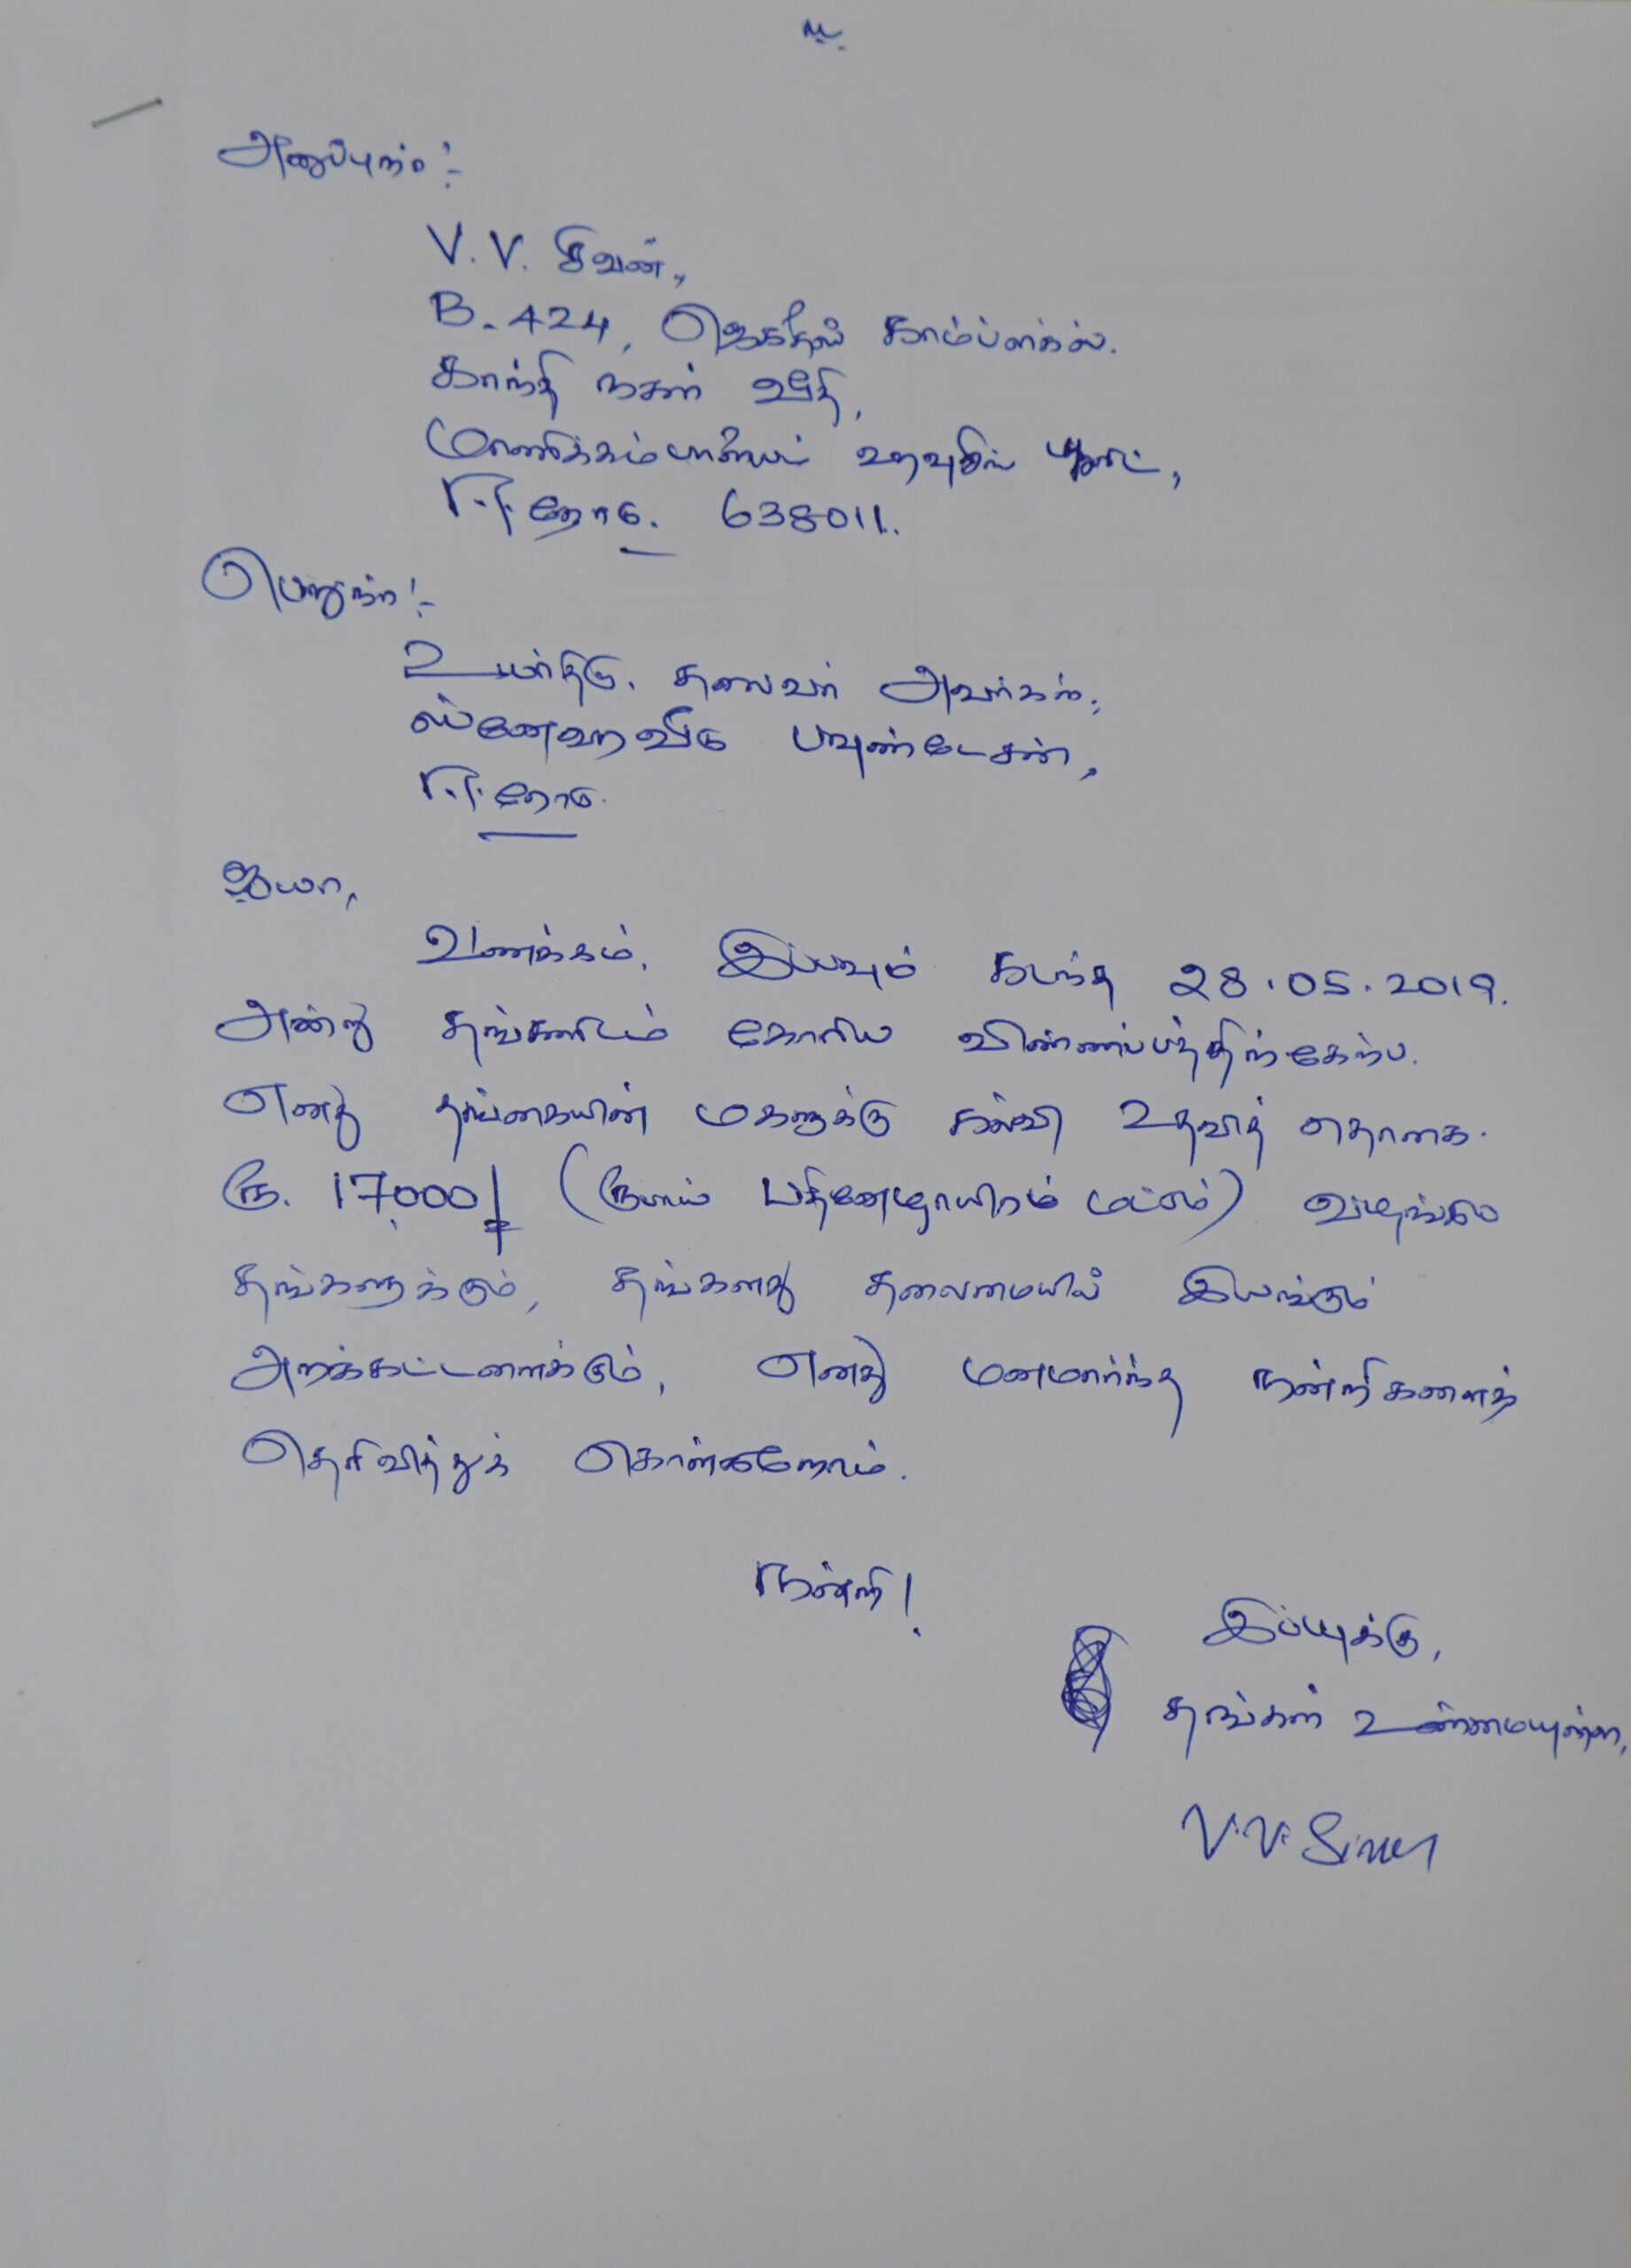 உ
அனுப்புநர்:-
V.V. சிவன்,
B-424, காம்ப்ளக்ஸ்.
காந்தி நகர் வீதி,
மாணிக்கம்பாளையம் ஹவுசிங் யூனிட்,
ஈரோடு. 638011.
பெறுநர்:-
உயர்திரு. தலைவர் அவர்கள்,
ஸ்னேஹவீடு பவுண்டேசன்,
ஈரோடு.
ஐயா,
வணக்கம். இப்பவும் கடந்த 28.05.2019.
அன்று தங்களிடம் கோரிய விண்ணப்பத்திற்கேற்ப.
எனது தங்கையின் மகளுக்கு கல்வி உதவித் தொகை.
ரூ. 17,000/= (ரூபாய் பதினேழாயிரம் மட்டும்) வழங்கிய
தங்களுக்கும், தங்களது தலைமையில் இயங்கும்
அறக்கட்டளைக்கும், எனது மனமார்ந்த நன்றிகளைத்
தெரிவித்துக் கொள்கிறோம்.
நன்றி!
இப்படிக்கு,
தங்கள் உண்மையுள்ள,
V.V. Sivan